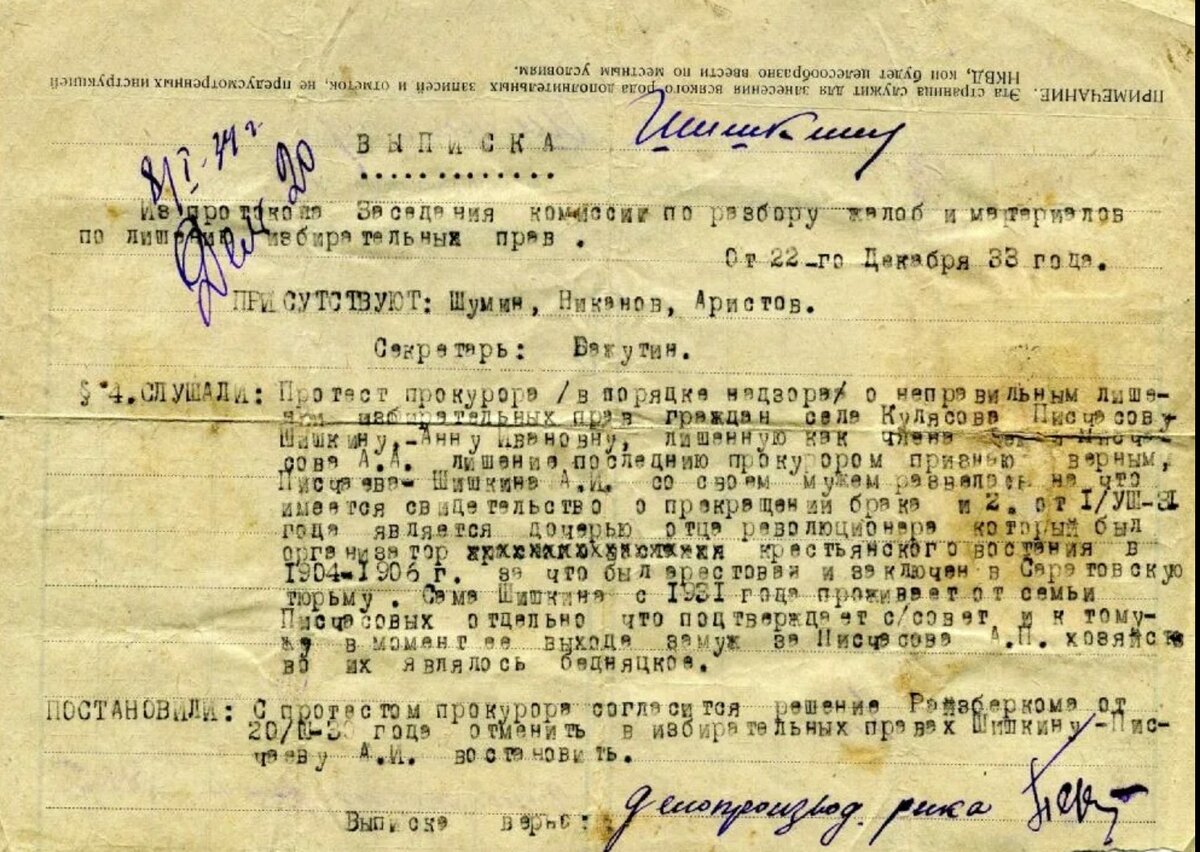 ПРИМЕЧАНИЕ. Эта страница служит для занесения всякого рода дополнительных записей и отметок, не предусмотренных инструкцией
НКВД, кои будет целесообразно ввести по местным условиям.
Шишкину
8/I-41 г.
Дел 20
ВЫПИСКА
Из протокола Заседания комиссии по разбору жалоб и материалов
по лишению избирательных прав .
От 22-го Декабря 33 года.
ПРИСУТСТВУЮТ: Шумин, Никанов, Аристов.
Секретарь: Бажутин.
§ 4. СЛУШАЛИ: Протест прокурора /в порядке надзора/ о неправильным лише-
нии избирательных прав граждан села Кулясова Писчасову
Шишкину,-Анну Ивановну, лишенную как члена Писча-
сова А.А. лишение последнию прокурором признаю верным,
Писчаева- Шишкина А.И. со своем мужем развелась на что
имеется свидетельство о прекращений брака и 2. от I/УШ-31
года является дочерью отца революционера который был
организатор крестьянского востания в
1904-1906 г. за что был арестован и заключен в Саратовскую
тюрьму . Сама Шишкина с 1931 года проживает от семьи
Писчасовых отдельно что подтверждает с/совет и к тому-
жу в момент ее выхода замуж за Писчасова А.П. хозяйств
во их являлось бедняцкое.
ПОСТАНОВИЛИ: С протестом прокурора согласится решение Райзберкома от
20/Ш-30 года отменить в избирательных правах Шишкину-Пис-
чаеву А.И. востановить.
Выписка верна: делопроизвод. рика